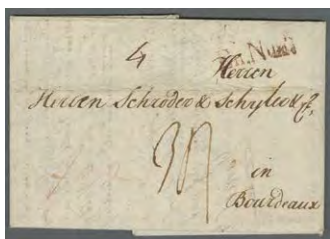 4
Herren
Herren Schröder & Schyler & Cº,
in
Bourdeaux